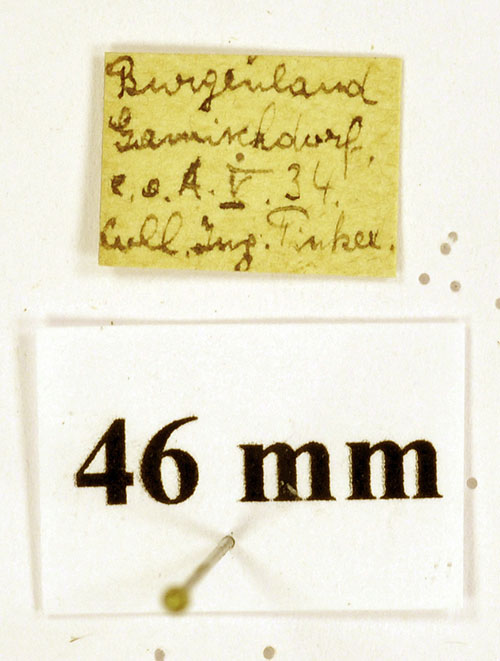 Burgenland
Gamischdorf,
e. o. A. V. 34.
Coll. Ing. Pinker.
46 mm